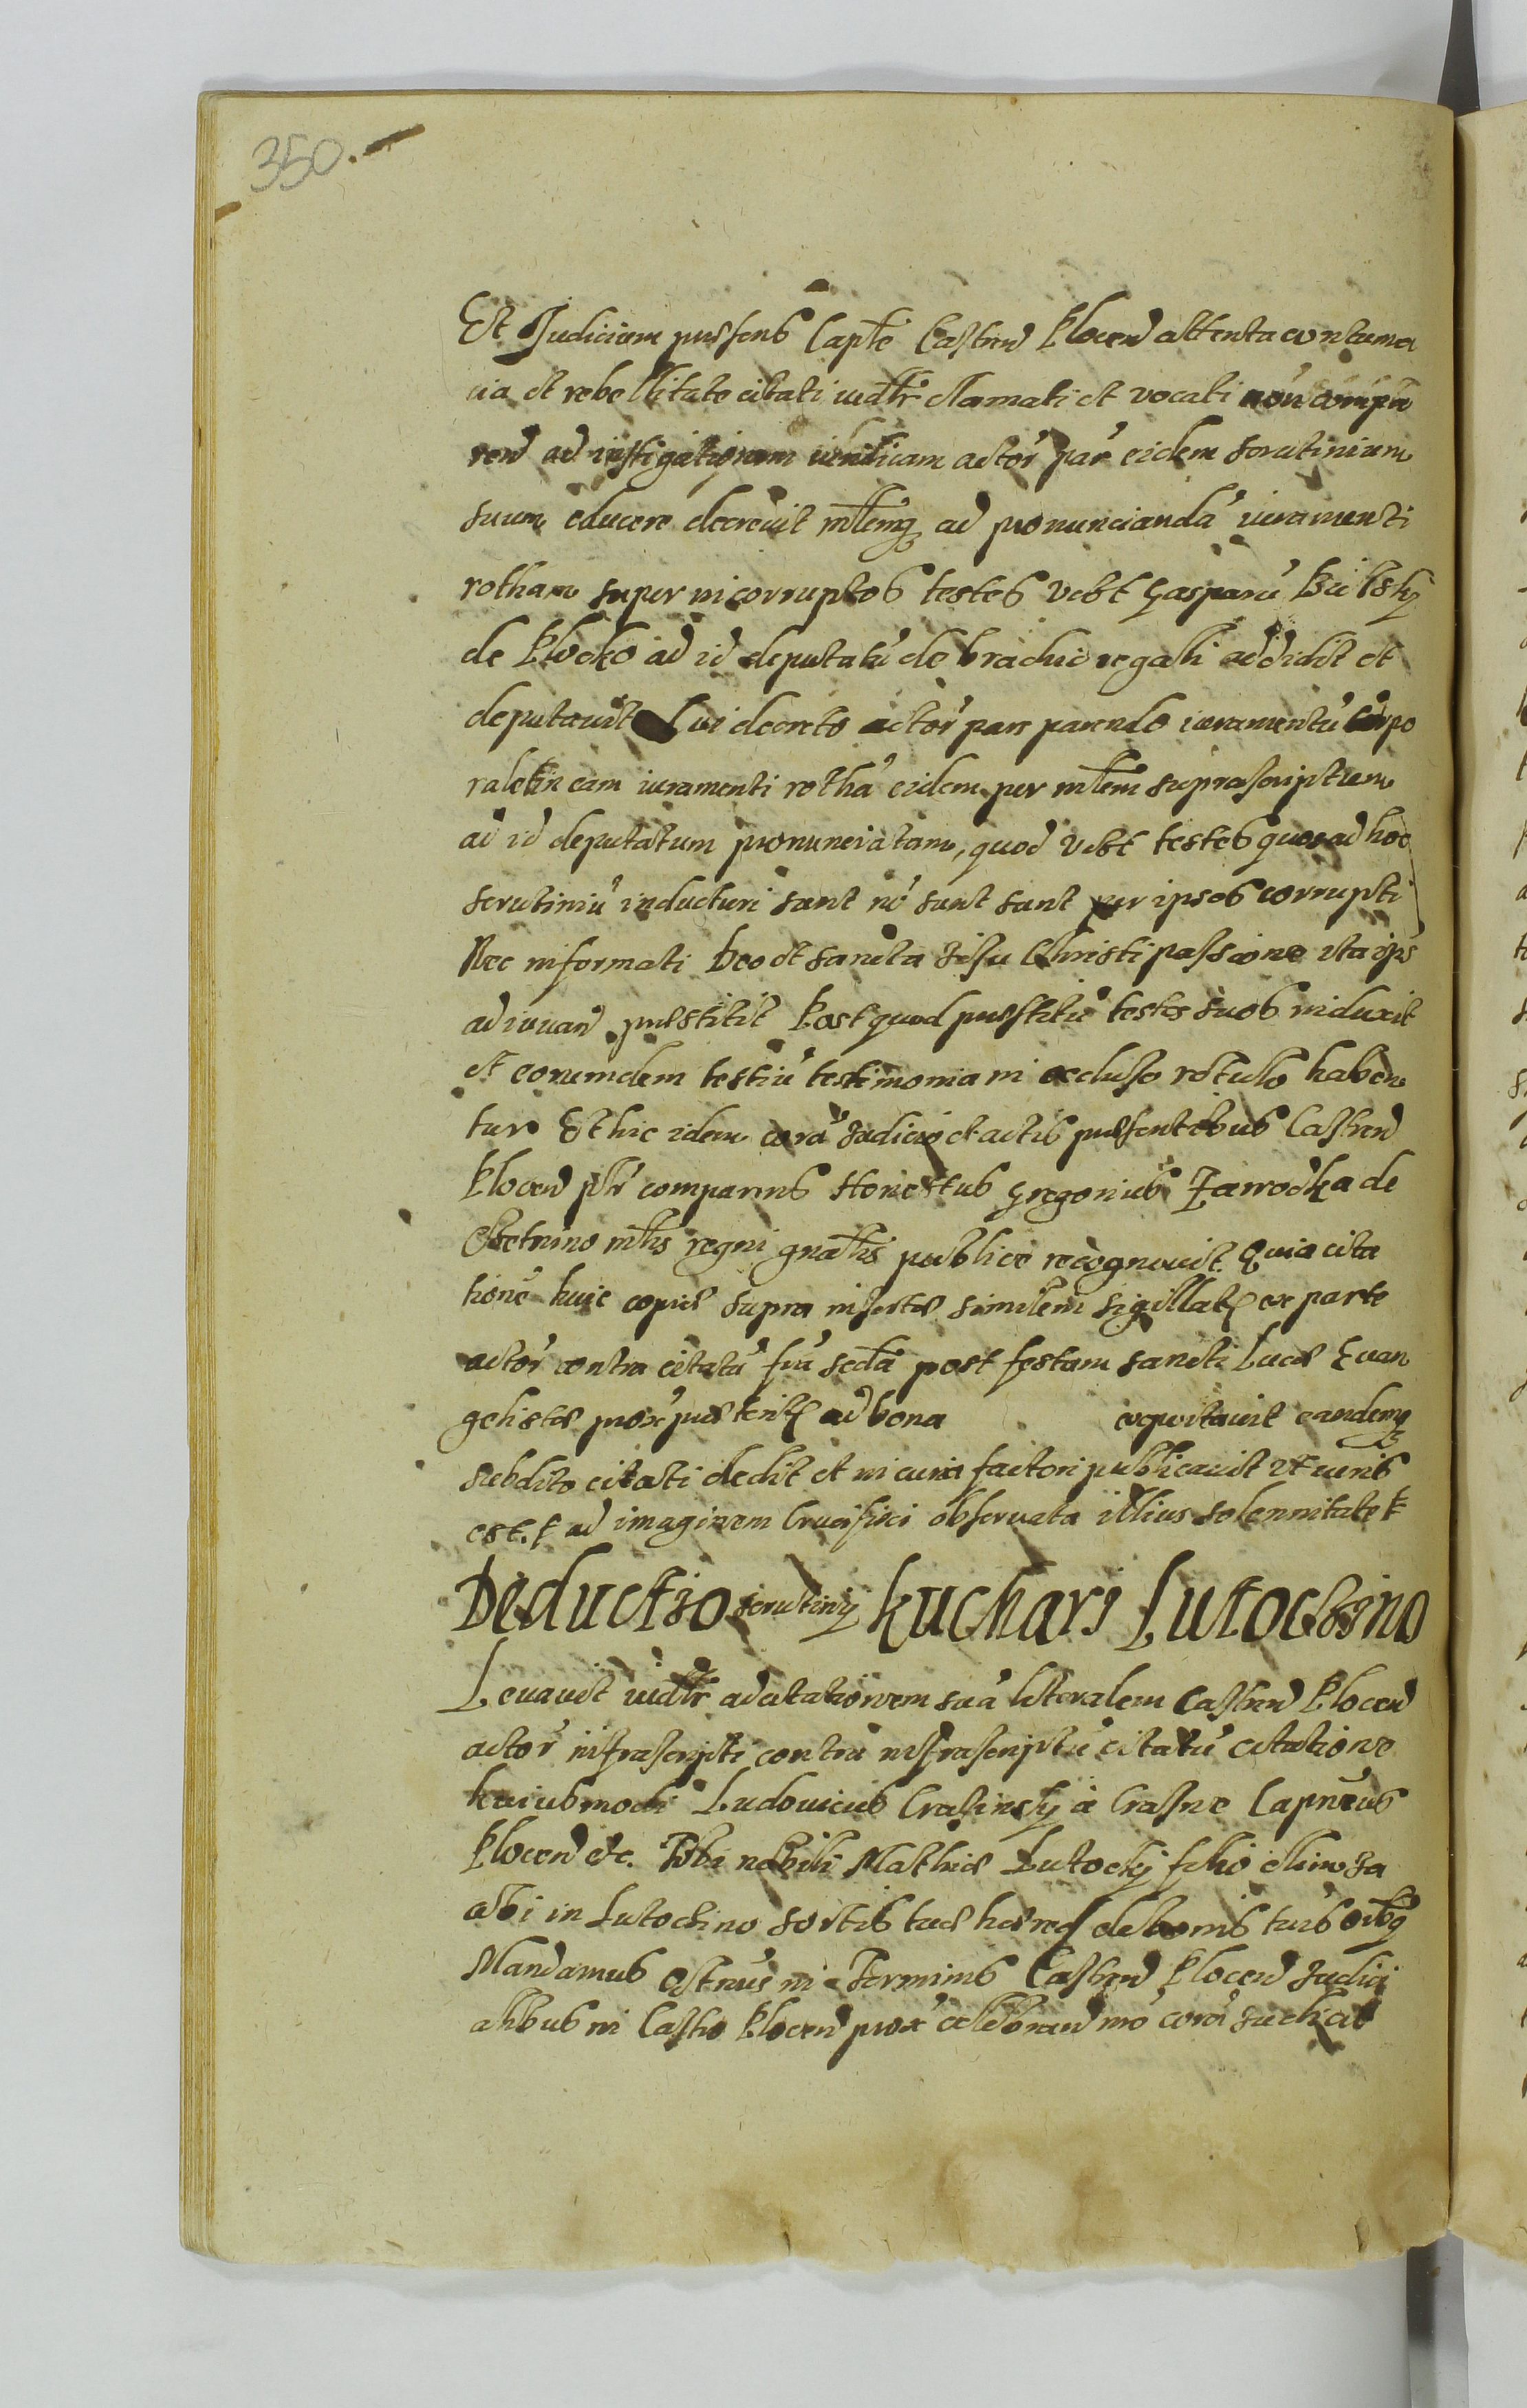 350.
Et Judicium præsens Capłe Castren Plocen attenta contuma
cia et rebellitate citati iudłr clamati et vocati non compa
ren ad instigationem iuridicam actor par eidem scrutinium
suum educere decrevit młemq ad pronunciandã iuramenti
rotham super incorruptos testes vdłt Gasparũ Bielsky
de Plocko ad id deputatũ de brachio regali addidit et
deputauit Cui decreto actor par parendo iuramentũ corpo
rale in eam iuramenti rothã eidem per młem suprascriptum
ad id deputatum pronunciatam, quod vdłt testes quos ad hoc
scrutiniũ inducturi sunt nõ sunt sunt per ipsos corrupti
Nec informati Deo et sancta Jesu Christi passione ita ips
adiuuan præstitit Post quod præstitũ testes suos induxit
et eorumdem testiũ testimonia in occluso rotulo haben
tur Et hic idem corã Judicio et actis præsentibus Castren
Plocen płr comparens Honestus Gregorius Zawodka de
młis regni gnałis publice recognouit Quia cita
tionẽ huic copiæ supra insertæ similem sigillatã ex parte
actor contra citatũ friã scdã post festum sancti Lucæ Euan
gelistæ prox præterit ad bona equitauit eandemq
subdito citati dedit et in curia factori publicauit vt iuris
est. t ad imaginem Crucifixi obseruata illius solennitate t
Deductio scrutinij Kuchari Lutochino
Leuauit iudłr ad citationem suã literalem Castren Plocen
actor infrascripti contra infrascriptũ citatũ citatione
huiusmodi Ludouicus Crasinsky à Crasne Capneus
Plocen etc. Tibi nobili Mathiæ Lutocky filio olim Ja
cobi in Lutochino sortis tuæ hæred de bonis tuis oibq
Mandamus in Terminis Castren Plocen Judici
alibus in Castro Plocen prox celebran mõ corã Judicio